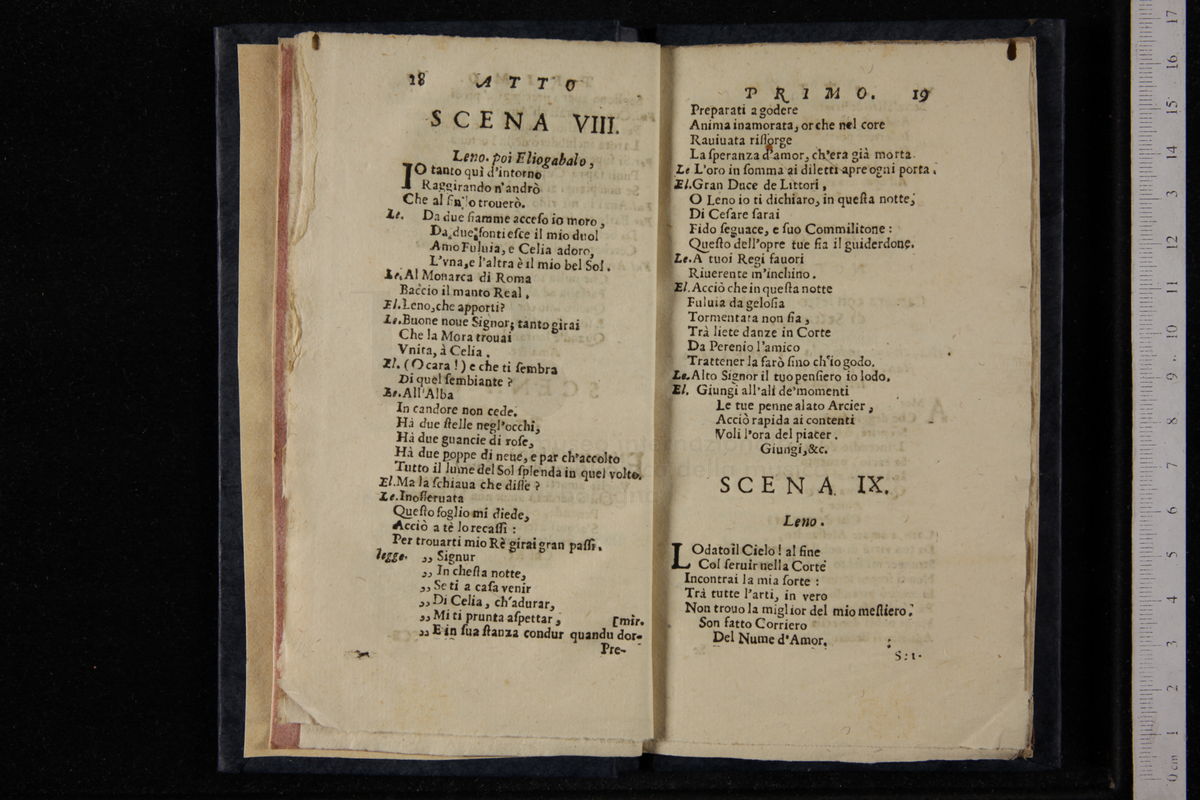 18 ATTO
SCENA VIII.
Leno. poi Eliogabalo,
IO tanto quì d'intorno
Raggirando n'andrò
Che al fin lo trouerò.
Le. Da due fiamme acceſo io moro,
Da due fonti eſce il mio duol
Amo Fuluia, e Celia adoro,
L'vna, e l'altra è il mio bel Sol.
Le. Al Monarca di Roma
Baccio il manto Real.
El. Leno, che apporti?
Le. Buone noue Signor; tanto girai
Che la Mora trouai
Vnita, à Celia.
El. (O cara!) e che ti ſembra
Di quel ſembiante?
Le. All'Alba
In candore non cede.
Hà due ſtelle negl'occhi,
Hà due guancie di roſe,
Hà due poppe di neue, e par ch'accolto
Tutto il lume del Sol ſplenda in quel volto.
El. Ma la ſchiaua che diſſe?
Le. Inoſſeruata
Queſto foglio mi diede,
Acciò a tè lo recaſſi:
Per trouarti mio Rè girai gran paſſi.
legge. ,, Signur
,, In cheſta notte,
,, Se ti a caſa venir
,, Di Celia, ch'adurar,
,, Mi ti prunta aſpettar, [mir.
,, E in ſua ſtanza condur quandu dor-
Pre-
PRIMO. 19
Preparati a godere
Anima inamorata, or che nel core
Rauiuata riſſorge
La ſperanza d'amor, ch'era già morta.
Le L'oro in ſomma ai diletti apre ogni porta.
El. Gran Duce de Littori,
O Leno io ti dichiaro, in queſta notte;
Di Ceſare ſarai
Fido ſeguace, e ſuo Commilitone:
Queſto dell'opre tue ſia il guiderdone.
Le. A tuoi Regi fauori
Riuerente m'inchino.
El. Acciò che in queſta notte
Fuluia da geloſia
Tormentata non ſia,
Trà liete danze in Corte
Da Perenio l'amico
Trattener la farò ſino ch'io godo.
Le. Alto Signor il tuo penſiero io lodo.
El. Giungi all'ali de'momenti
Le tue penne alato Arcier,
Acciò rapida ai contenti
Voli l'ora del piacer.
Giungi, &c.
SCENA IX.
Leno.
LOdato il Cielo! al fine
Col ſeruir nella Corte
Incontrai la mia ſorte:
Trà tutte l'arti, in vero
Non trouo la miglior del mio meſtiero.
Son fatto Corriero
Del Nume d'Amor.